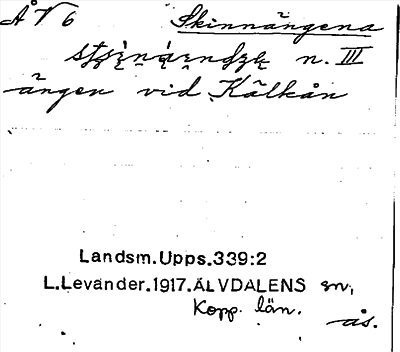 ÅV 6 Skinnängena
n. III
ängen vid Kälkån
Landsm.Upps.339:2
L.Levander.1917.ÄLVDALENS sn,
Kopp. län.
ås.